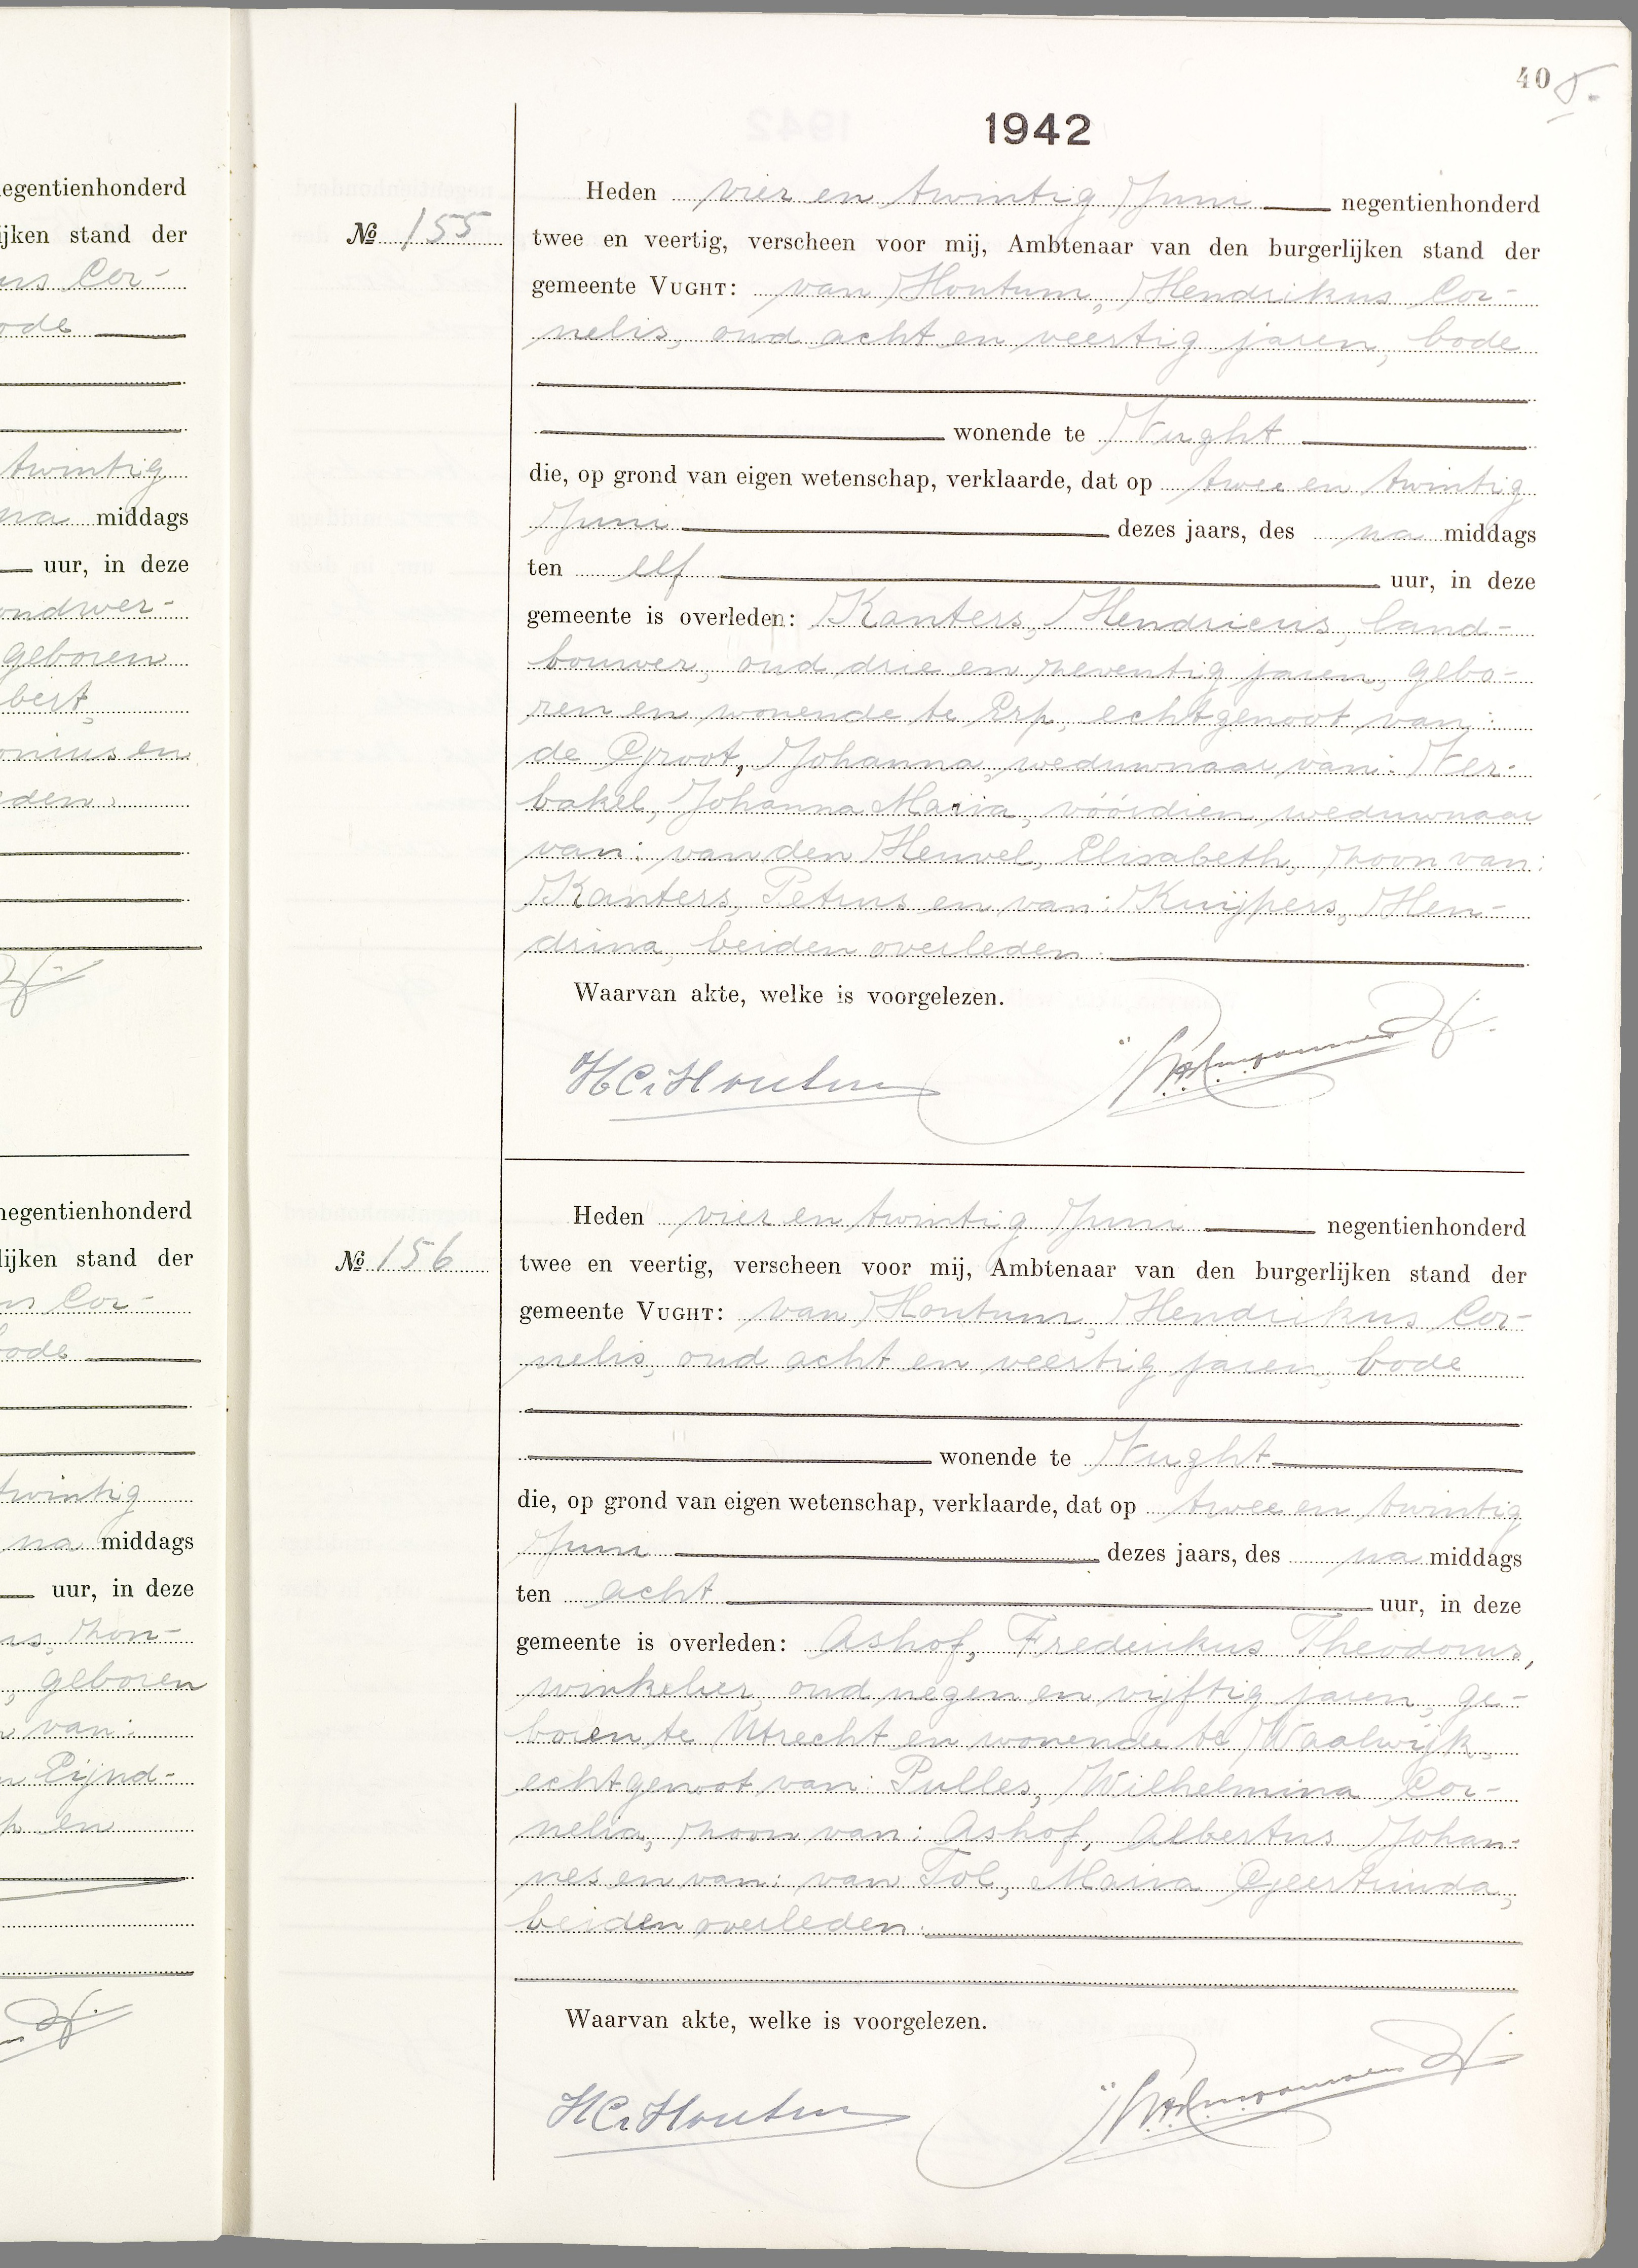 egentienhonderd
ijken stand der
us Cor-
ode
twintig
na middags
uur, in deze
ondwer-
geboren
bert,
onius en
eden.
negentienhonderd
lijken stand der
us Cor-
bode
twintig
na middags
uur, in deze
us, zoon-
, geboren
n van:
n Eijnd-
p en
40
1942
Heden vier en twintig Juni negentienhonderd
№ 155
twee en veertig, verscheen voor mij, Ambtenaar van den burgerlijken stand der
gemeente VUGHT: van Houtum, Hendrikus Cor-
nelis, oud acht en veertig jaren, bode
wonende te Vught
die, op grond van eigen wetenschap, verklaarde, dat op twee en twintig
Juni dezes jaars, des na middags
ten elf uur, in deze
gemeente is overleden: Kanters, Hendricus, land-
bouwer, oud drie en zeventig jaren, gebo-
ren en wonende te Erp, echtgenoot van:
de Groot, Johanna, weduwnaar van: Ver-
bakel, Johanna Maria, vóórdien weduwnaar
van: van den Heuvel, Elisabeth, zoon van:
Kanters, Petrus en van: Kuijpers, Hen-
drina, beiden overleden.
Waarvan akte, welke is voorgelezen.
HCvHoutum
Heden vier en twintig Juni negentienhonderd
№ 156
twee en veertig, verscheen voor mij, Ambtenaar van den burgerlijken stand der
gemeente VUGHT: van Houtum, Hendrikus Cor-
nelis, oud acht en veertig jaren, bode
wonende te Vught
die, op grond van eigen wetenschap, verklaarde, dat op twee en twintig
Juni dezes jaars, des na middags
ten acht uur, in deze
gemeente is overleden: Ashof, Frederikus Theodorus,
winkelier, oud negen en vijftig jaren, ge-
boren te Utrecht en wonende te Waalwijk,
echtgenoot van: Pulles, Wilhelmina Cor-
nelia, zoon van: Ashof, Albertus Johan-
nes en van: van Tol, Maria Geertruida,
beiden overleden.
Waarvan akte, welke is voorgelezen.
HCvHoutum